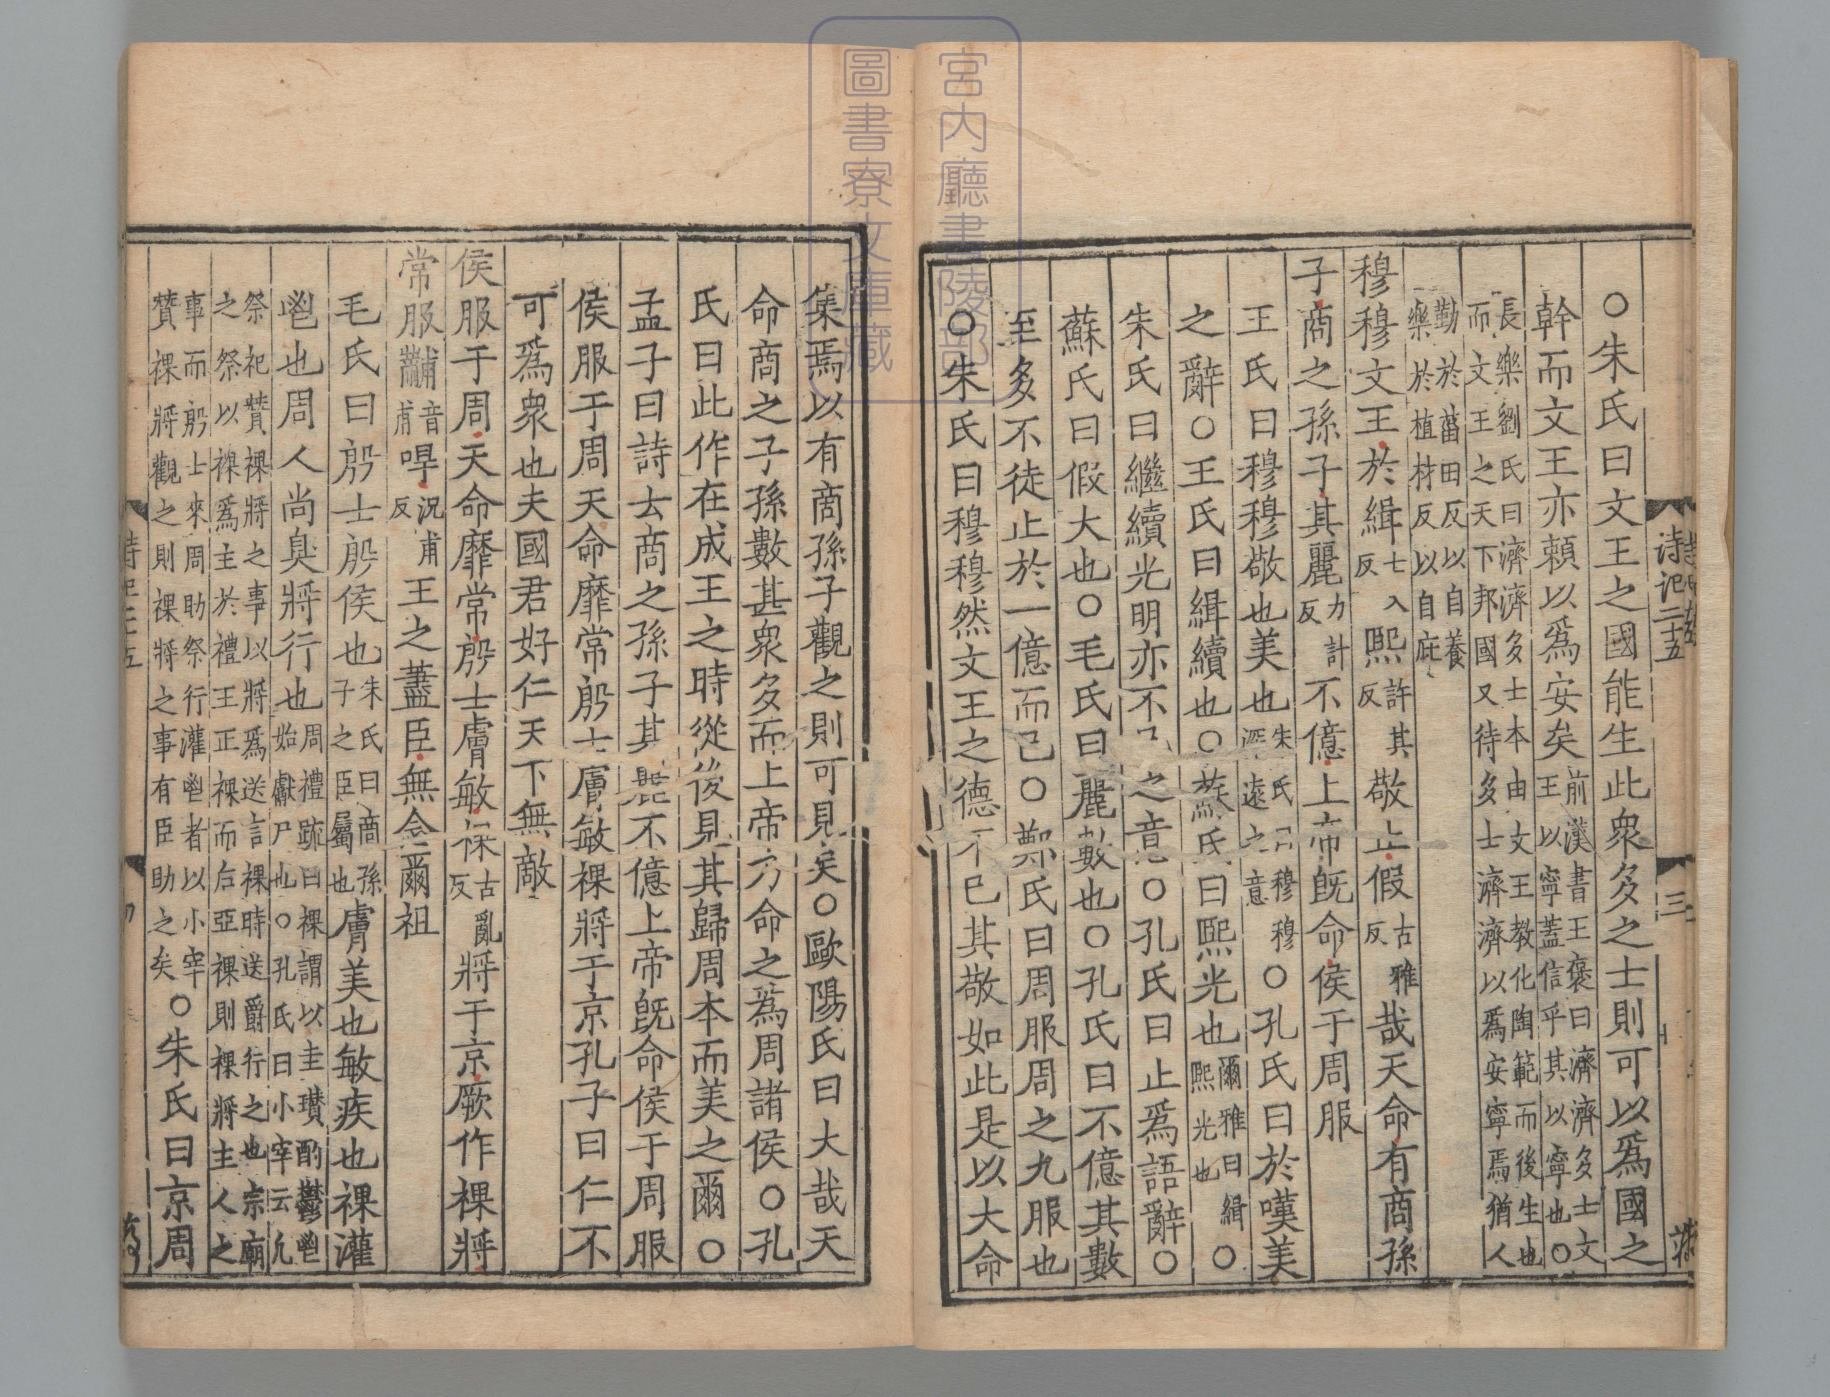 ○朱氏曰文王之國能生此衆多之士則可以爲國之
幹而文王亦頼以爲安矣前漢書王褒曰濟濟多士文王以寧蓋信乎其以寧也○
長樂劉氏曰濟濟多士本由文王教化陶範而後生也而文王之天下邦國又待多士濟濟以爲安寧焉猶人
勤於葘田反以自養樂於植材反以自庇
穆穆文王於緝熙士入反許其反敬止假古雅反哉天命有商孫
子商之孫子其麗力計反不億上帝旣命侯于周服
王氏曰穆穆敬也美也朱氏曰穆穆深遠之意○孔氏曰於嘆美
之辭○王氏曰緝續也○蘇氏曰熙光也爾雅曰緝熙光也○
朱氏曰繼續光明亦不已之意○孔氏曰止爲語辭○
蘇氏曰假大也○毛氏曰麗數也○孔氏曰不億其數
至多不徒止於一億而已○鄭氏曰周服周之九服也
○朱氏曰穆穆然文王之德不已其敬如此是以大命
集焉以有商孫子觀之則可見矣○歐陽氏曰大哉天
命商之子孫數甚衆多而上帝方命之爲周諸侯○孔
氏曰此作在成王之時從後見其歸周本而美之爾○
孟子曰詩云商之孫子其麗不億上帝旣命侯于周服
侯服于周天命靡常殷士膚敏祼將于京孔子曰仁不
可爲衆也夫國君好仁天下無敵
侯服于周天命靡常殷士膚敏祼古亂反將于京厥作祼將
常服黼音甫冔況甫反王之藎臣無念爾祖
毛氏曰殷士殷侯也朱氏曰商孫子之臣屬也膚美也敏疾也祼灌
鬯也周人尚臭將行也周禮疏曰祼謂以圭瓉酌鬱鬯始獻尸也○孔氏曰小宰云凡
祭祀贊祼將之事以將爲送言祼時送爵行之也宗廟之祭以祼爲主於禮王正祼而后亞祼則祼將主人之
事而殷士來周助祭行灌鬯者以小宰贊祼將觀之則祼將之事有臣助之矣○朱氏曰京周
詩記二十五
三
宮内廳書陵部
圖書寮文庫藏